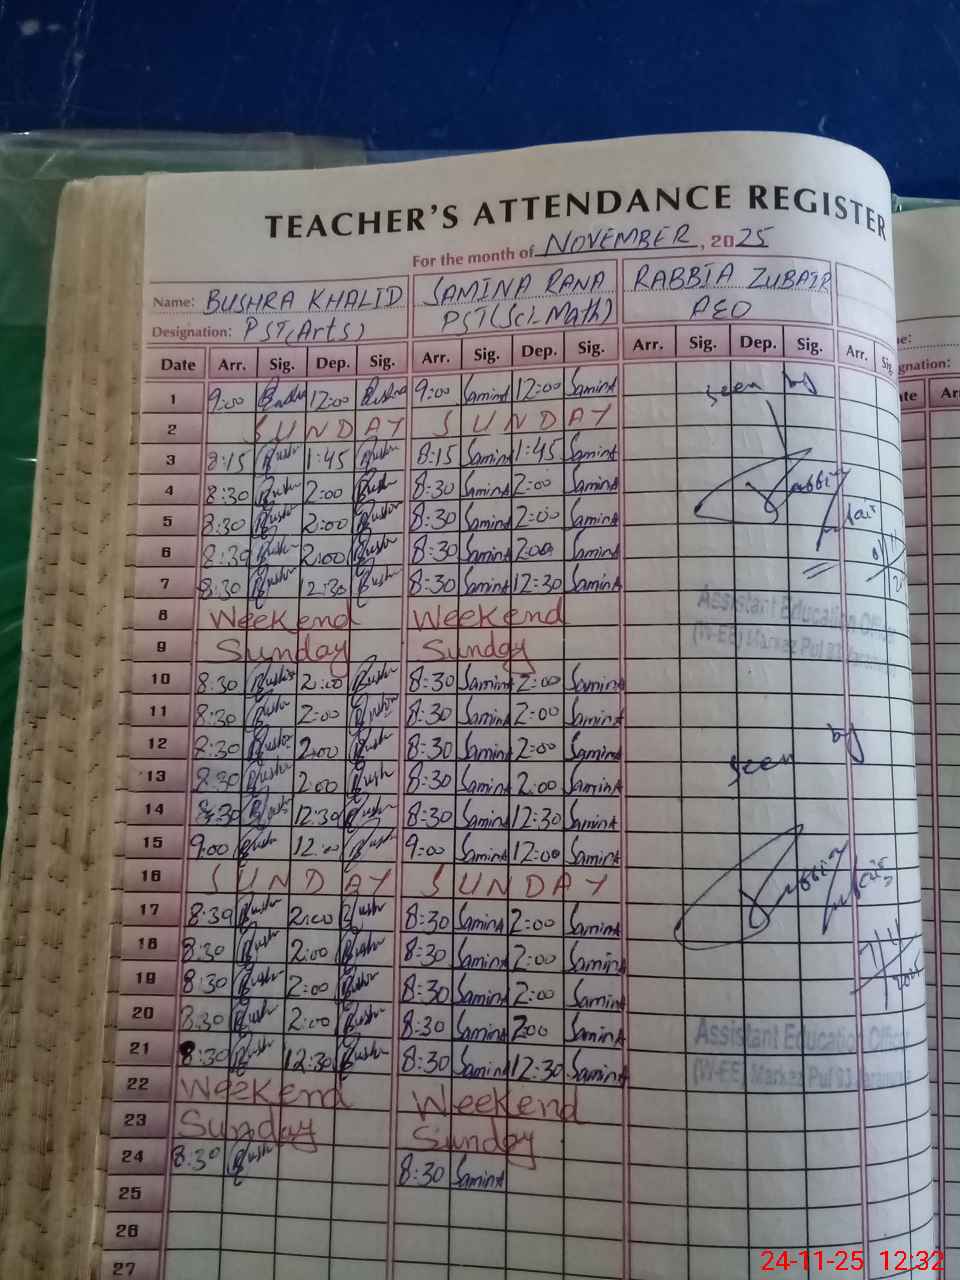 TEACHER'S ATTENDANCE REGISTER
For the month of NOVEMBER, 2025
Name: BUSHRA KHALID SAMINA RANA RABBIA ZUBAIR
Designation: PST(Arts) PST(Sci-Math) AEO
Date Arr. Sig. Dep. Sig. Arr. Sig. Dep. Sig. Arr. Sig. Dep. Sig. Arr. Sig.
1 9:00 Bushra 12:00 Bushra 9:00 Samina 12:00 Samina seen by
2 SUNDAY SUNDAY
3 8:15 Bushr 1:45 Bushr 8:15 Samina 1:45 Samina
4 8:30 Bushr 2:00 Bushr 8:30 Samina 2:00 Samina
5 8:30 Bushr 2:00 Bushr 8:30 Samina 2:00 Samina
6 8:30 Bushr 2:00 Bushr 8:30 Samina 2:00 Samina
7 8:30 Bushr 12:30 Bushr 8:30 Samina 12:30 Samina
8 Weekend Weekend
Assistant Education Officer
9 Sunday Sunday
(W-EE) Markaz Pul 93
10 8:30 Bushr 2:00 Bushr 8:30 Samina 2:00 Samina
11 8:30 Bushr 2:00 Bushr 8:30 Samina 2:00 Samina
12 8:30 Bushr 2:00 Bushr 8:30 Samina 2:00 Samina seen by
13 8:30 Bushr 2:00 Bushr 8:30 Samina 2:00 Samina
14 8:30 Bushr 12:30 Bushr 8:30 Samina 12:30 Samina
15 9:00 Bushr 12:00 Bushr 9:00 Samina 12:00 Samina
16 SUNDAY SUNDAY
17 8:30 Bushr 2:00 Bushr 8:30 Samina 2:00 Samina
18 8:30 Bushr 2:00 Bushr 8:30 Samina 2:00 Samina
19 8:30 Bushr 2:00 Bushr 8:30 Samina 2:00 Samina
20 8:30 Bushr 2:00 Bushr 8:30 Samina 2:00 Samina
Assistant Education Officer
21 8:30 Bushr 12:30 Bushr 8:30 Samina 12:30 Samina
(W-EE) Markaz Pul 93
22 Weekend Weekend
23 Sunday Sunday
24 8:30 Bushr 8:30 Samina
25
26
27
24-11-25 12:32